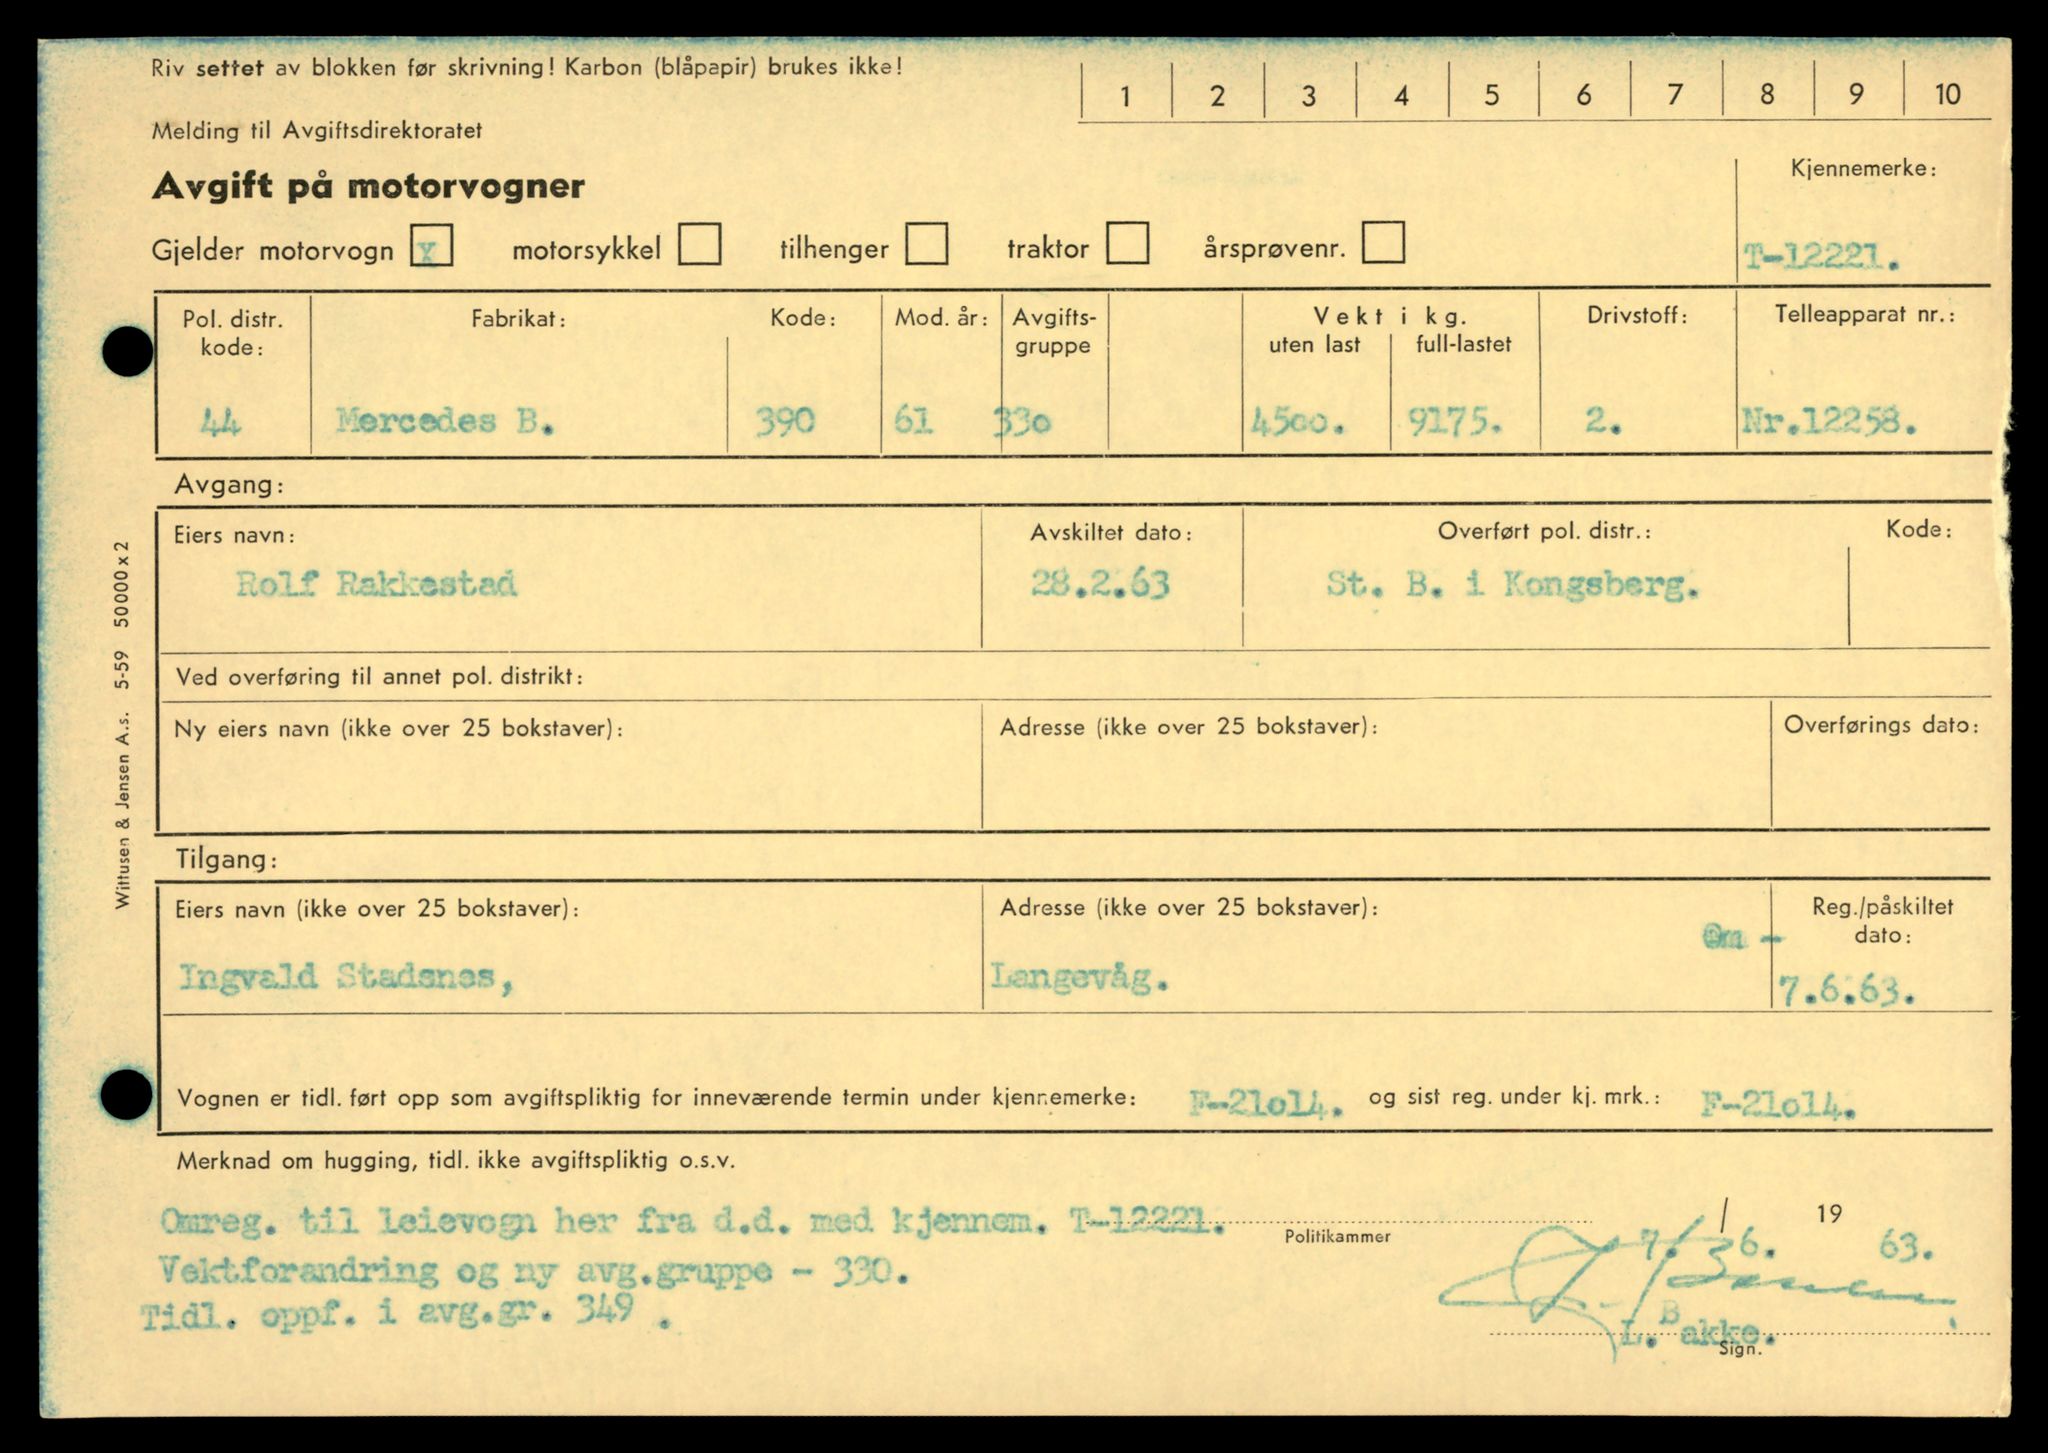 Riv settet av blokken før skrivning! Karbon (blåpapir) brukes ikke!
1 2 3 4 5 6 7 8 9 10
Melding til Avgiftsdirektoratet
Avgift på motorvogner
Kjennemerke:
Gjelder motorvogn x motorsykkel tilhenger traktor årsprøvenr.
T-12221.
Pol. distr. kode: Fabrikat: Kode: Mod. år: Avgifts-gruppe Vekt i kg. uten last full-lastet Drivstoff: Telleapparat nr.:
44 Mercedes B. 390 61 33o 45oo. 9175. 2. Nr.12258.
Avgang:
Eiers navn: Avskiltet dato: Overført pol. distr.: Kode:
Rolf Rakkestad 28.2.63 St. B. i Kongsberg.
Ved overføring til annet pol. distrikt:
Ny eiers navn (ikke over 25 bokstaver): Adresse (ikke over 25 bokstaver): Overførings dato:
Tilgang:
Eiers navn (ikke over 25 bokstaver): Adresse (ikke over 25 bokstaver): Reg./påskiltet dato:
Om -
Ingvald Stadsnes, Langevåg. 7.6.63.
Vognen er tidl. ført opp som avgiftspliktig for inneværende termin under kjennemerke: F-21o14. og sist reg. under kj. mrk.: F-21o14.
Merknad om hugging, tidl. ikke avgiftspliktig o.s.v.
Omreg. til leievogn her fra d.d. med kjennem. T-12221.
Politikammer
/ 19
7. 6. 63.
Vektforandring og ny avg.gruppe - 330.
Tidl. oppf. i avg.gr. 349 .
L. Bakke.
Sign.
Wittusen & Jensen A.s. 5-59 50000 x 2